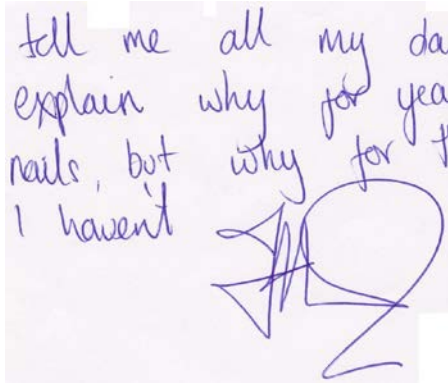 tell me all my da
explain why for yea
nails, but why for t
I havent